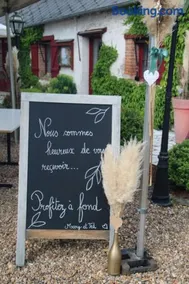 Booking.com
Nous sommes
heureux de vous
recevoir...
Profitez à fond